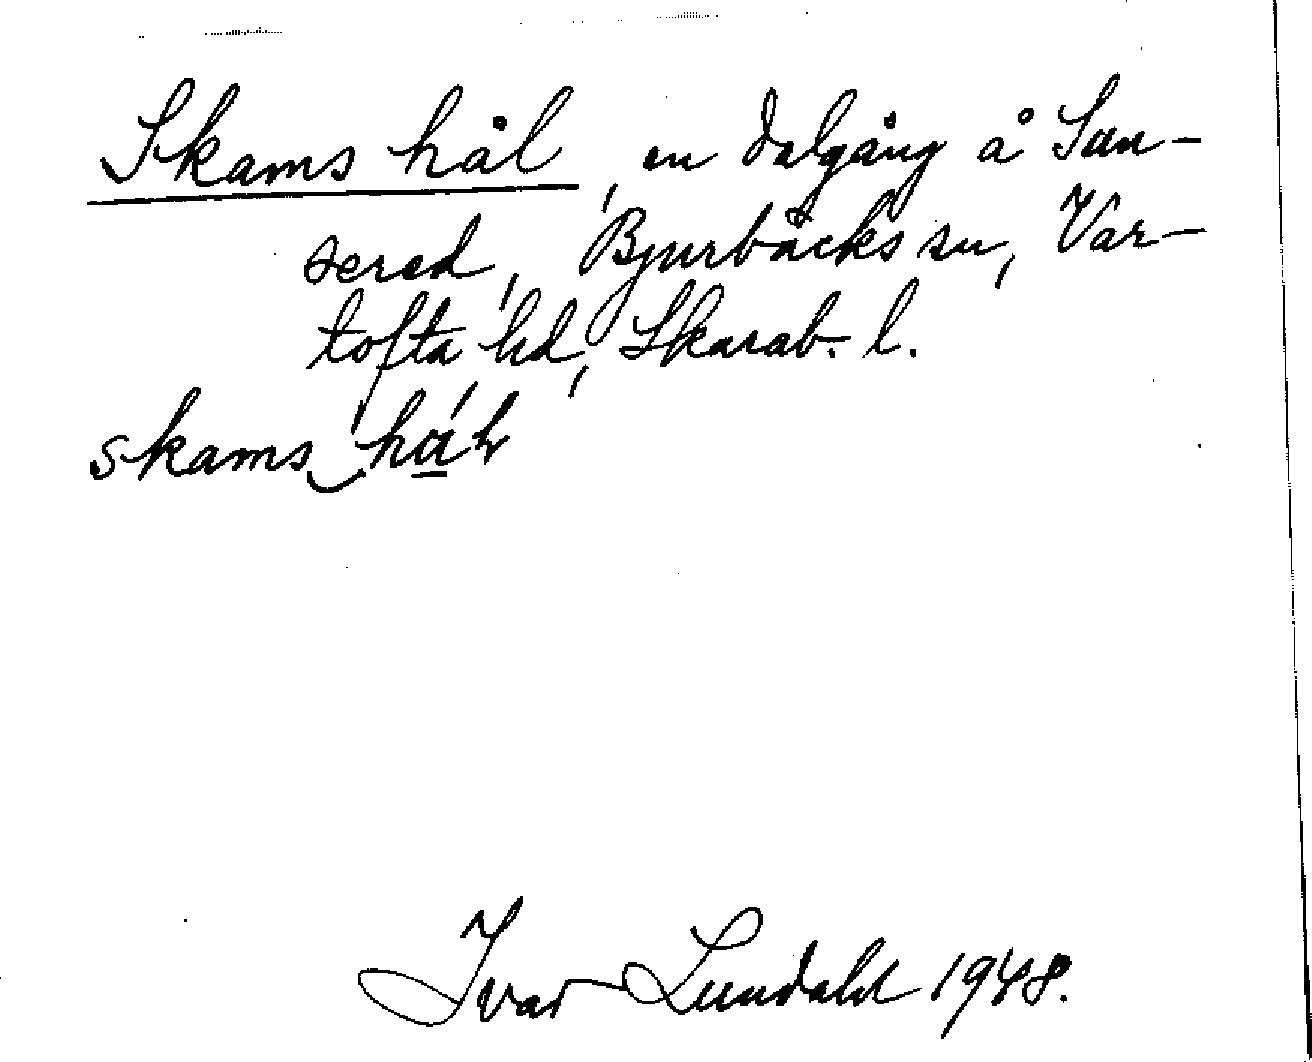 Skams hål, en dalgång å Sun-
sered, Bjurbäcks sn, Var-
tofta hd, Skarab. l.
skams
Ivar Lundahl 1948.